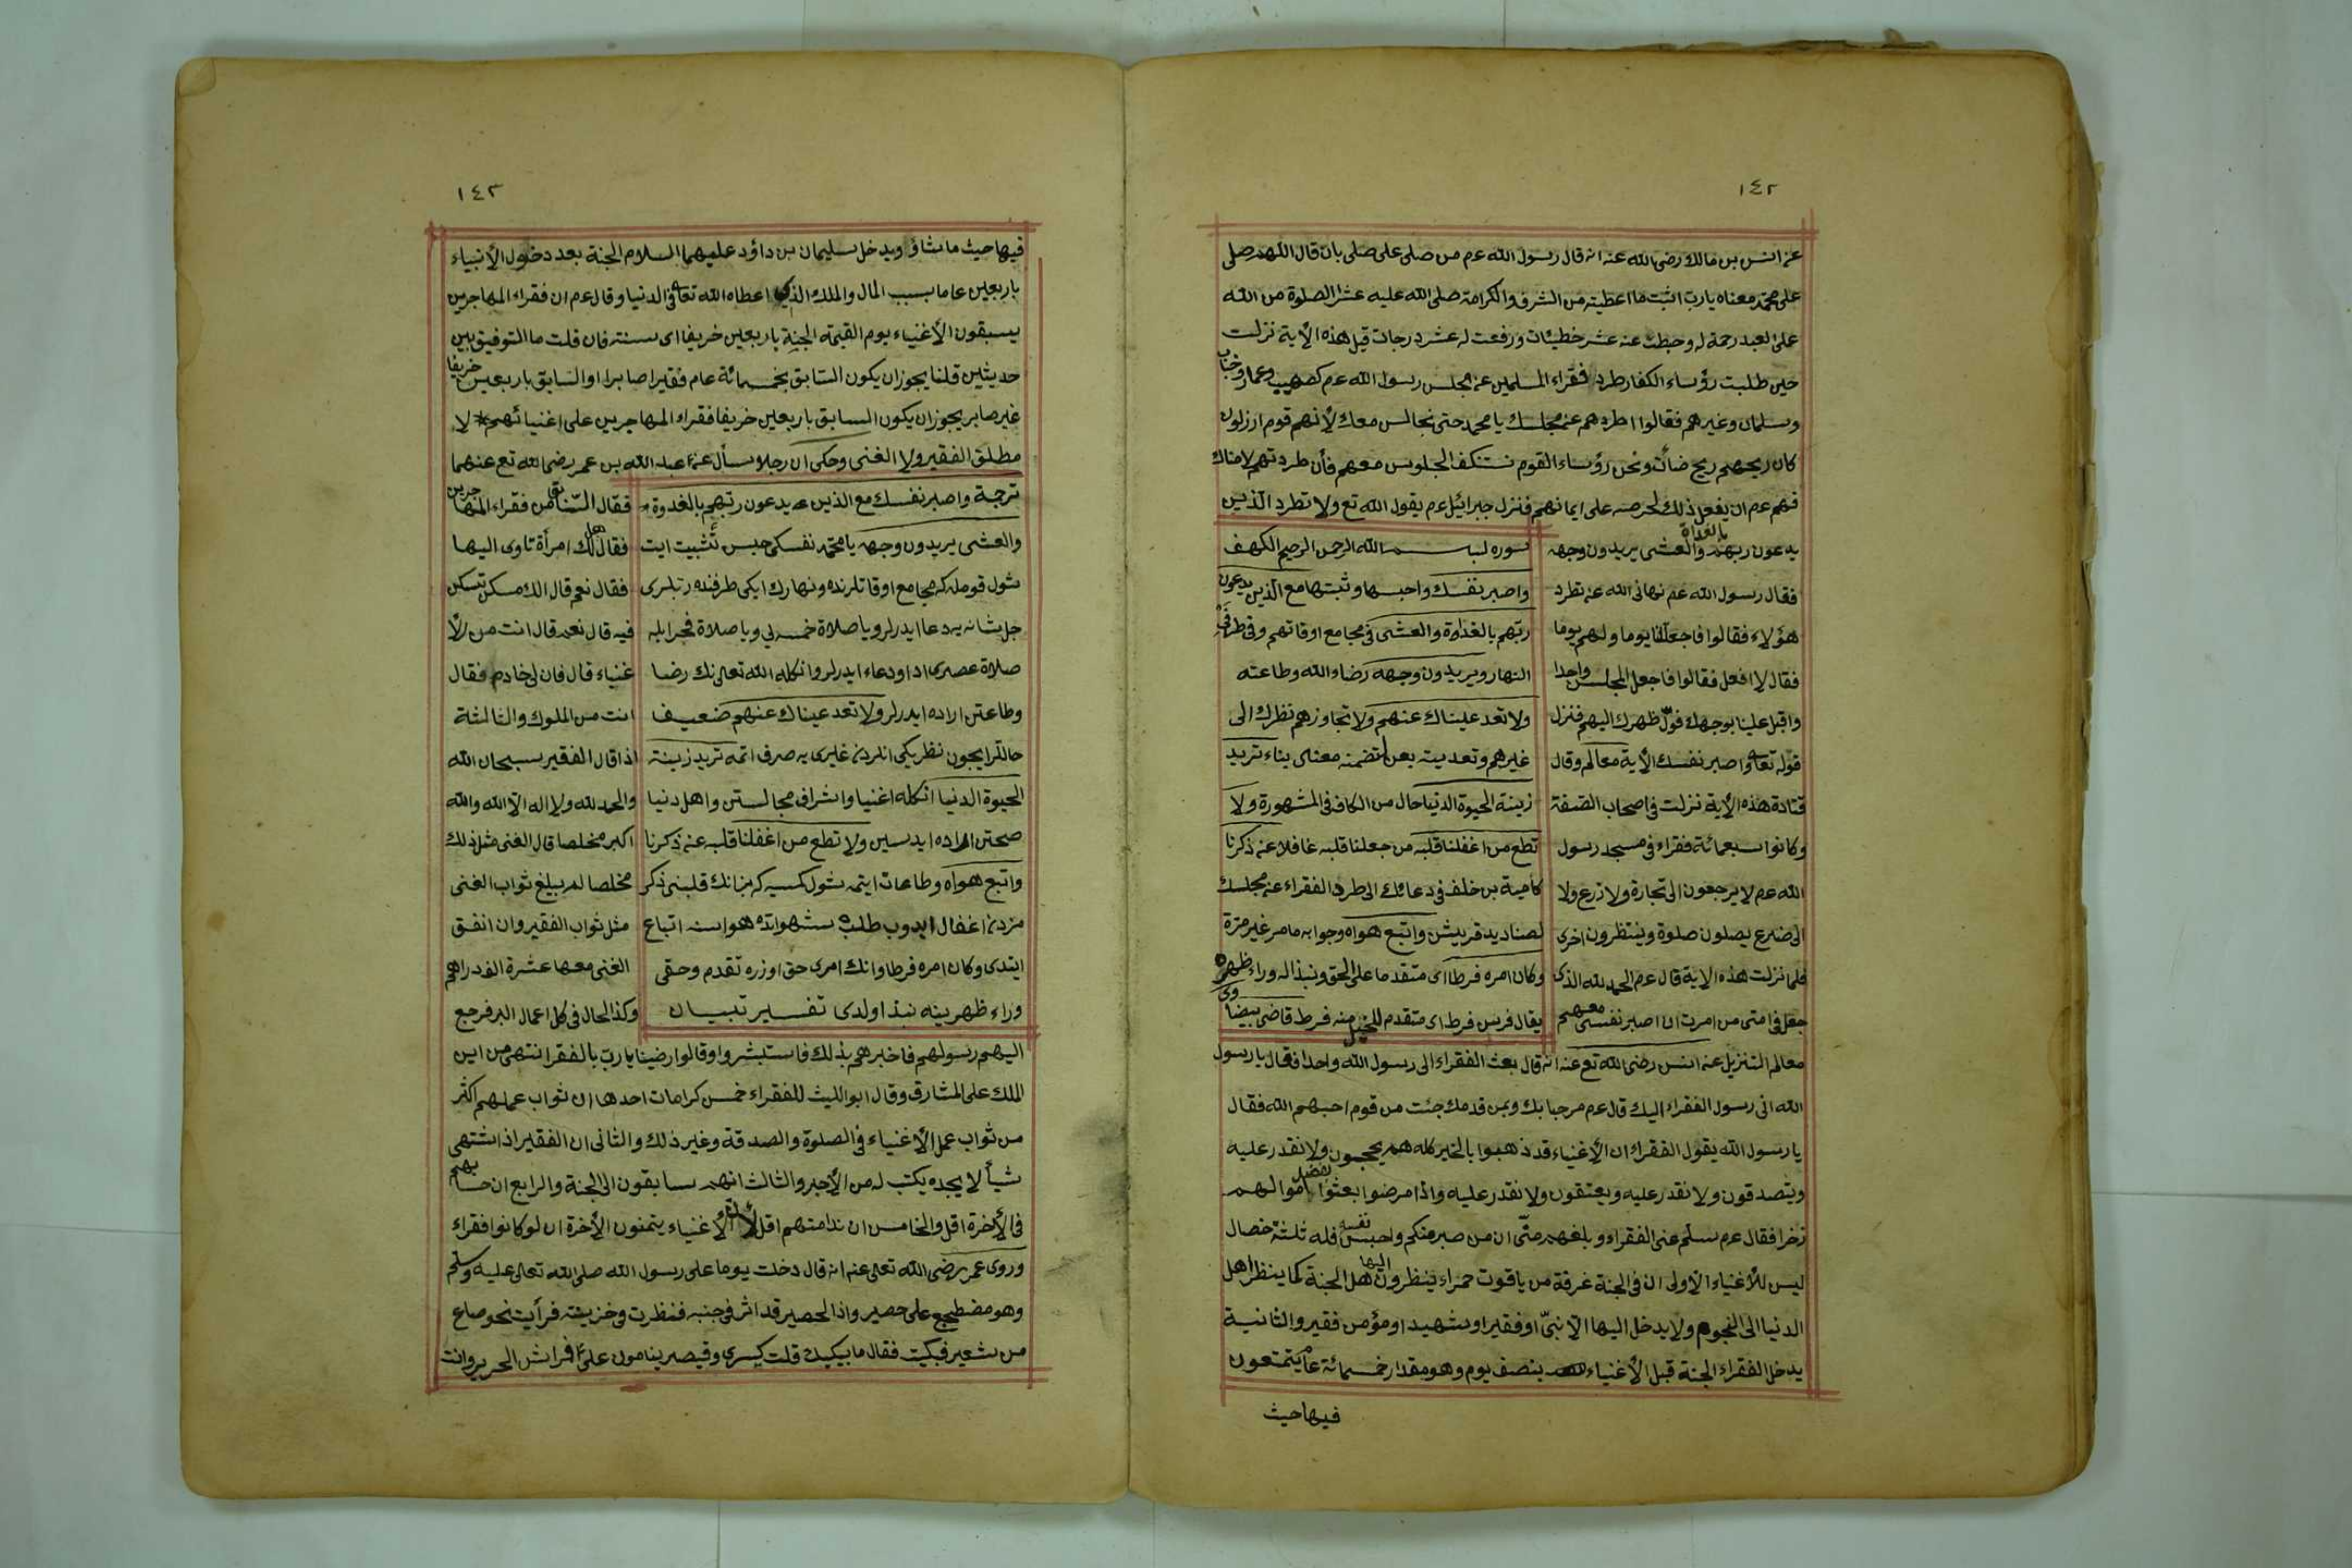 ١٤٢
عن انس بن مالك رضى الله عنه انه قال رسول الله عم من صلى على صلى بان قال اللهم صلى
على محمد معناه يارب اثبت ما اعطيته من الشرف والكرامة صلى الله عليه عشرا الصلوة من الله
على العبد رحمة له وحبطت عنه عشر خطيئات ورفعت له عشر درجات قيل هذه الأية نزلت
حين طلبت رؤساء الكفار طرد فقراء المسلمين عن مجلس رسول الله عم كصهيب وعمار وخباب
وسلمان وغيرهم فقالوا اطردهم عن مجلسك يا محمد حتى نجالس معك لأنهم قوم ارزلون
كان ريحهم ريح ضأن ونحن رؤساء القوم نستنكف الجلوس معهم فأن طردتهم لامناك
فهم عم ان يفعل ذلك لحرصه على ايمانهم فنزل جبرائيل عم يقول الله تع ولا تطرد الذين
يدعون ربهم بالغداة والعشى يريدون وجهه
فقال رسول الله عم نهانى الله عن تطرد
هؤلاء فقالوا فاجعل لنا يوما ولهم يوما
فقال لا افعل فقالوا فاجعل المجلس واحدا
واقبل علينا بوجهك فول ظهرك اليهم فنزل
قوله تعا واصبر نفسك الأية معالم وقال
قتادة هذه الأية نزلت فى اصحاب الصفة
وكانوا سبعمائة فقراء فى مسجد رسول
الله عم لا يرجعون الى تجارة ولا زرع ولا
الى ضرع يصلون صلوة وينتظرون اخرى
فلما نزلت هذه الاية قال عم الحمد لله الذى
جعل فى امتى من امرت ان اصبر نفسى معهم
سوره بسم الله الرحمن الرحيم الكهف
واصبر نفسك واحبسها وثبتها مع الذين يدعون
ربهم بالغداوة والعشى فى مجامع اوقاتهم وفى طرفى
النهار ويريدون وجهه رضاء الله وطاعته
ولا تعد عيناك عنهم ولا تجاوزهم نظرك الى
غيرهم وتعديته بعن لتضمنه معنى بناء تريد
زينة الحيوة الدنيا حال من الكاف فى المشهورة ولا
تطع من اغفلنا قلبه من جعلنا قلبه غافلا عن ذكرنا
كامية بن خلف فى دعائك الى طرد الفقراء عن مجلسك
لصناديد قريش واتبع هواه وجوابه ما مر غير مرة
وكان امره فرطا اى متقدما على الحق ونبذا له وراء ظهره
يقال فرس فرط اى متقدم للخيل منه فرط قاضى بيضاوى
معالم التنزيل عن انس رضى الله تع عنه انه قال بعث الفقراء الى رسول الله واحدا فقال يا رسول
الله انى رسول الفقراء اليك قال عم مرحبا بك وبمن قدمك جئت من قوم احبهم الله فقال
يا رسول الله يقول الفقراء ان الأغنياء قد ذهبوا بالخير كله هم يحجون ولا نقدر عليه
ويتصدقون ولا نقدر عليه ويعتقون ولا نقدر عليه واذا مرضوا بعثوا بفضل اموالهم
زخرا فقال عم سلم عنى الفقراء وبلغهم منى ان من صبر منكم واحبس نفسه فله ثلثة خصال
ليس للأغنياء الأولى ان فى الجنة غرفة من ياقوت حمراء ينظرون اليها اهل الجنة كما ينظر اهل
الدنيا الى النجوم ولا يدخل اليها الا نبى او فقير او شهيد او مؤمن فقير والثانية
يدخل الفقراء الجنة قبل الأغنياء بنصف يوم وهو مقدار خمسمائة عام يتمتعون
فيها حيث
١٤٣
فيها حيث ما شاؤ ويدخل سليمان بن داؤد عليهما السلام الجنة بعد دخول الأنبياء
باربعين عاما بسبب المال والملك الذى اعطاه الله تعا فى الدنيا وقال عم ان فقراء المهاجرين
يسبقون الأغنياء يوم القيمة الجنة باربعين خريفا اى سنته فان قلت ما التوفيق بين
حديثين قلنا يجوز ان يكون السابق بخمسمائة عام فقيرا صابرا او السابق باربعين خريفا
غير صابر يجوز ان يكون السابق باربعين خريفا فقراء المهاجرين على اغنيائهم لا
مطلق الفقير ولا الغنى وحكى ان رجلا سأل عن عبد الله بن عمر رضى الله تع عنهما
ترجمة واصبر نفسك مع الذين يدعون ربهم بالغدوة
والعشى يريدون وجهه يا محمد نفسكى حبس تثبيت ايت
شول قومله كه مجامع اوقاتلرنده ونهارك ايكى طرفنده ربلرى
جل شانه يه دعا ايدرلر ويا صلاة خمسه لى ويا صلاة فجر ايله
صلاة عصرى ادا ودعاء ايدرلر وانكله الله تعالى نك رضا
وطاعتن اراده ايدرلر ولا تعد عيناك عنهم ضعيف
حاللرايچون نظريكى انلردن غيرى يه صرف اتمه تريد زينة
الحيوة الدنيا انكله اغنيا واشراف مجالستن واهل دنيا
صحبتن اراده ايدسين ولا تطع من اغفلنا قلبه عن ذكرنا
واتبع هواه وطاعات ايتمه شول كمسيه كه بز انك قلبنى ذكر
مزدن اغفال ايدوب طلب شهواتده هواسنه اتباع
ايتدى وكان امره فرطا وانك امرى حق اوزره تقدم وحقى
وراء ظهرينه نبذ اولدى تفسير تبيان
فقال السنا من فقراء المهاجرين
فقال هل لك امرأة تاوى اليها
فقال نعم قال الك مسكن تسكن
فيه قال نعم قال انت من الأ
غنياء قال فان لى خادم فقال
انت من الملوك والثالثة
اذا قال الفقير سبحان الله
والحمد لله ولا اله الا الله والله
اكبر مخلصا قال الغنى مثل ذلك
مخلصا لم يبلغ ثواب الغنى
مثل ثواب الفقير وان انفق
الغنى معها عشرة الف دراهم
وكذا الحال فى كل اعمال البر فرجع
اليهم رسولهم فاخبرهم بذلك فاستبشروا وقالوا رضينا يارب بالفقر انتهى من ابن
الملك على المشارق وقال ابو الليث للفقراء خمس كرامات احدها ان ثواب عملهم اكثر
من ثواب عمل الأغنياء فى الصلوة والصدقة وغير ذلك والثانى ان الفقير اذا اشتهى
شيأ لا يجده يكتب له من الأجر والثالث انهم سابقون الى الجنة والرابع ان حسابهم
فى الأخرة اقل والخامس ان ندامتهم اقل لأن الأغنياء يتمنون الأخرة ان لو كانوا فقراء
وروى عمر رضى الله تعالى عنه انه قال دخلت يوما على رسول الله صلى الله تعالى عليه وسلم
وهو مضطجع على حصير واذا الحصير قد اثر فى جنبه فنظرت فى خزينته فرأيت نحو صاع
من شعير فبكيت فقال ما يبكيك قلت كسرى وقيصر ينامون على افراش الحرير وانت